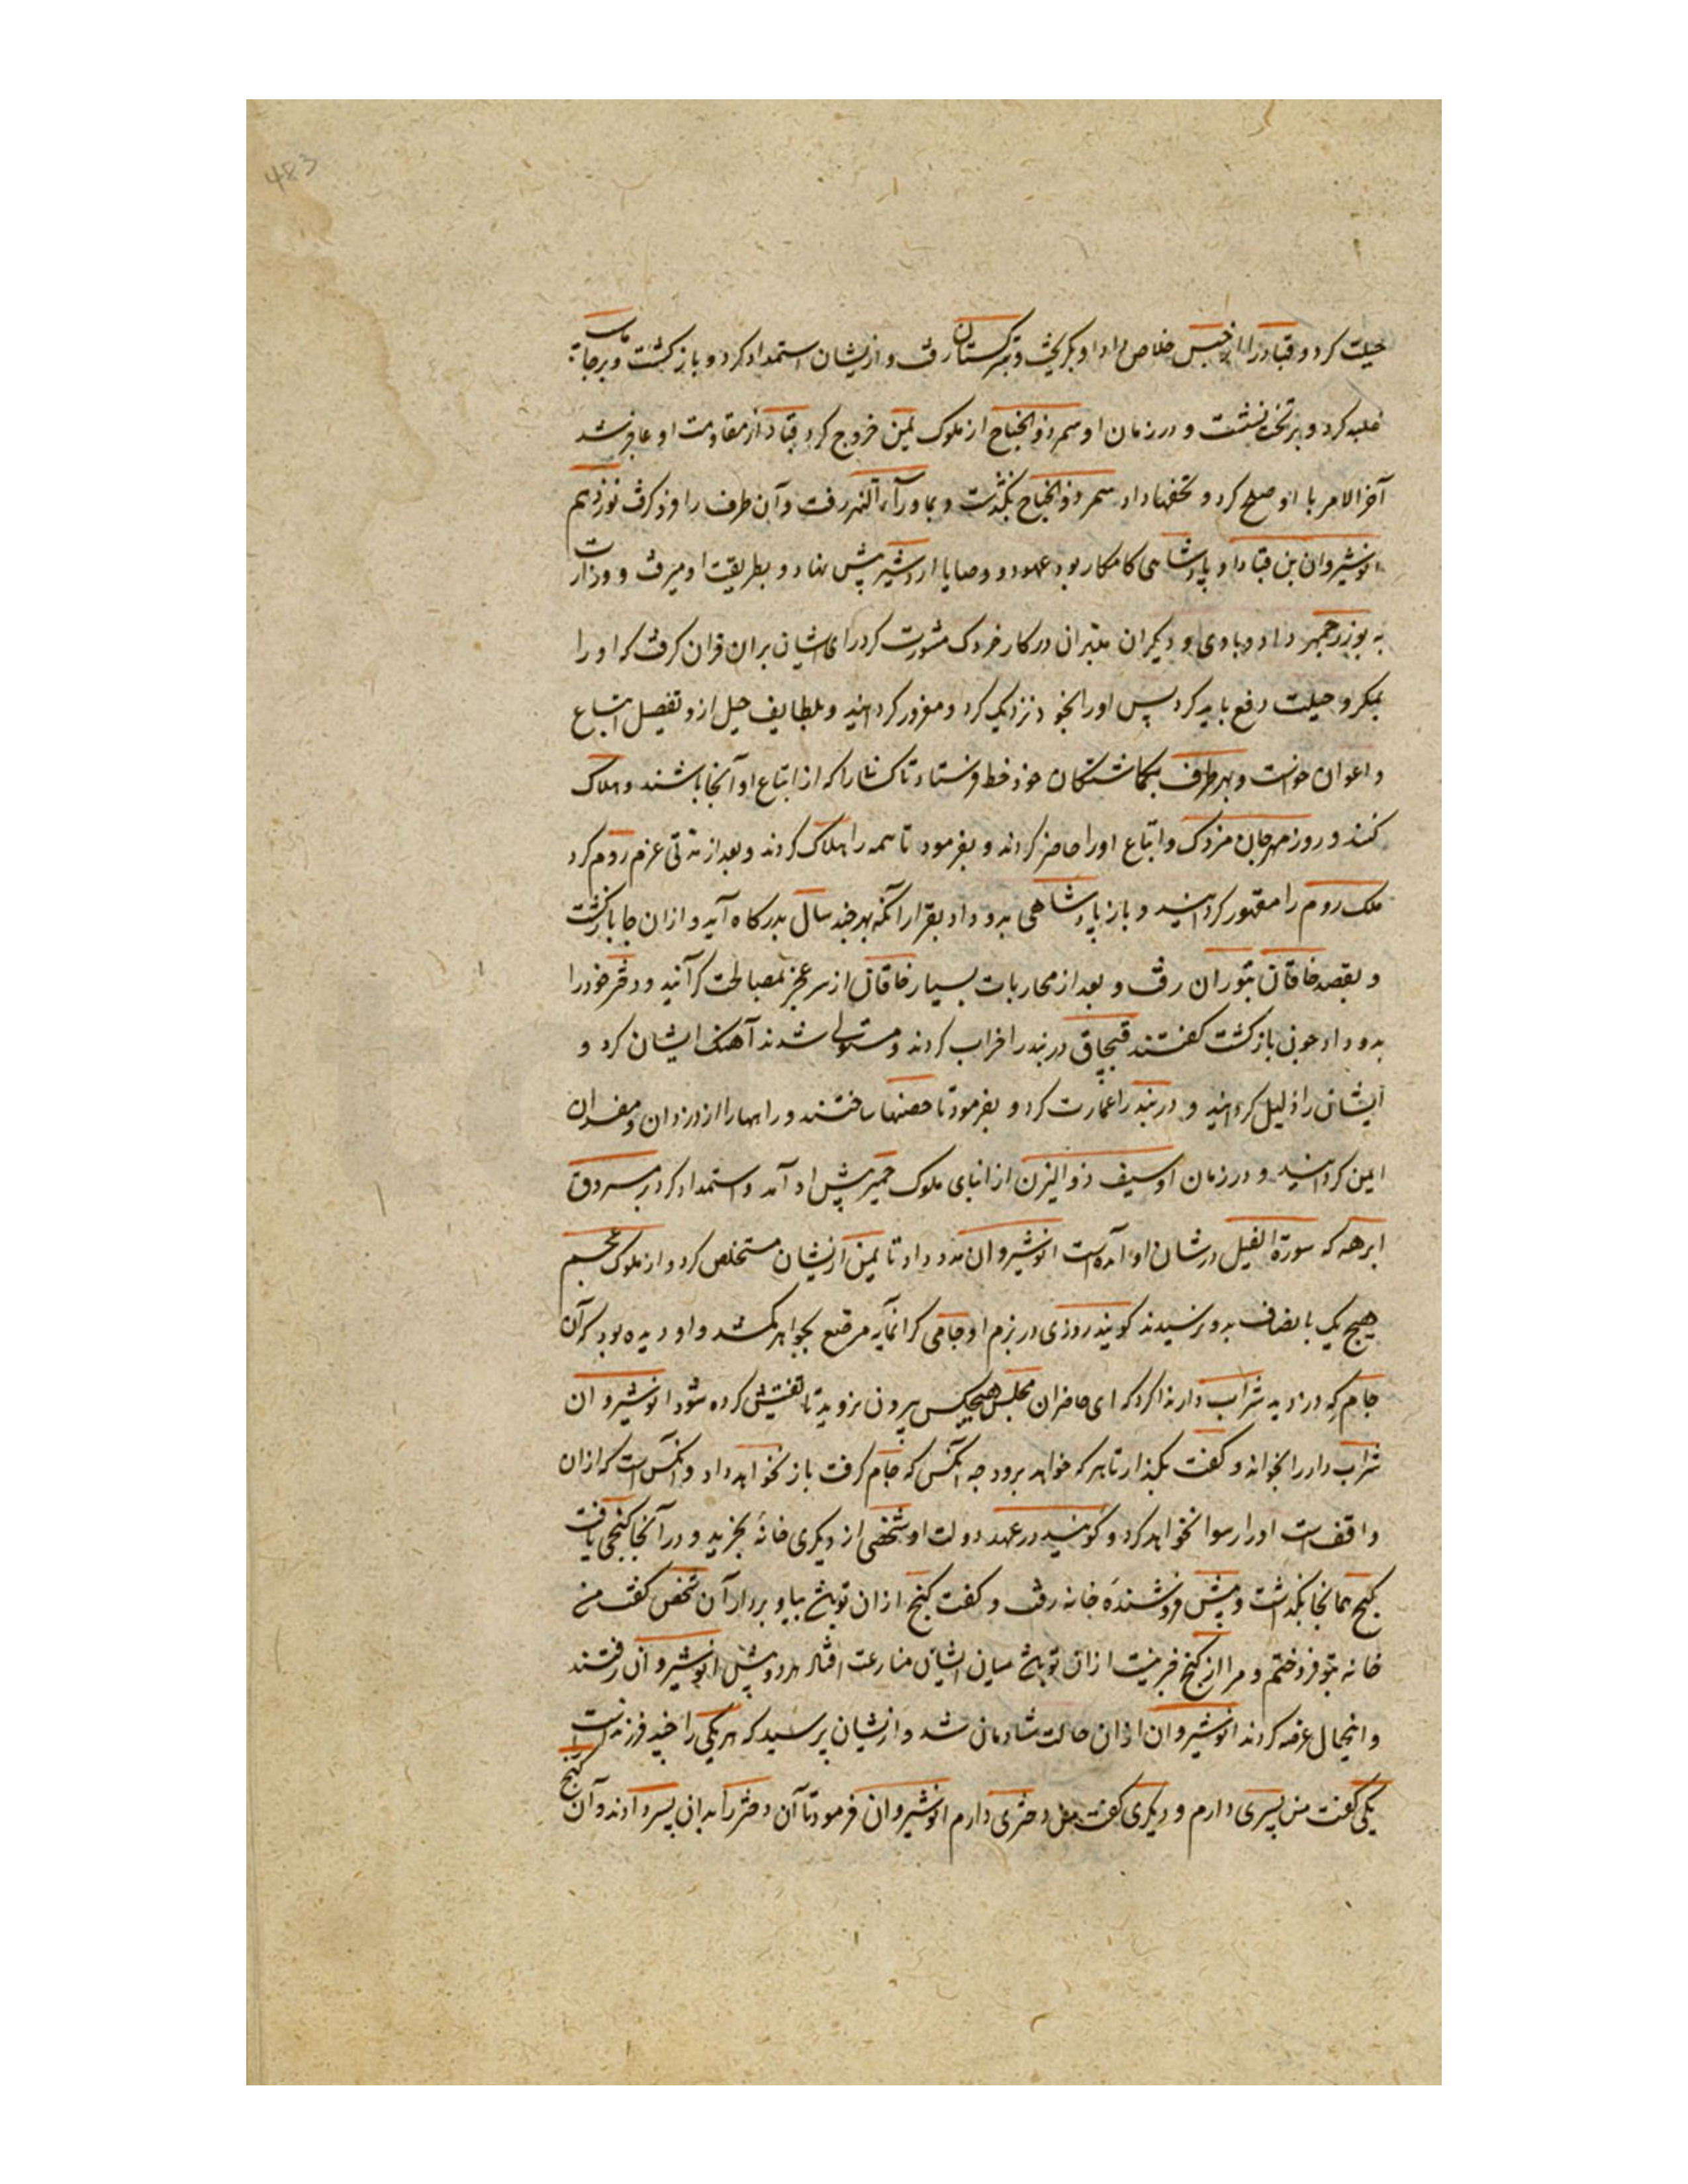 483
حیلت کرد و قباد را از حبس خلاص داد او بکریخت و بترکستان رفت و از ایشان استمداد کرد و باز کشت و بر جاماسب
غلبه کرد و بر تخت نشست و در زمان او سمر ذوالجناح از ملوک یمن خروج کرد قباد از مقاومت او عاجز شد
آخر الامر با او صلح کرد و تحفها داد سمر ذوالجناح بکذشت و بماورآء النهر رفت و آن طرف را فرو کرفت نوزدهم
انوشیروان بن قباد او پادشاهی کامکار بود عهود و وصایا اردشیر پیش نهاد و بطریقت او میرفت و وزارت
به بوزرجمهر داد و با وی و دیکران مدبرانی در کار مزدک مشورت کرد رای ایشان بران قران کرفت که او را
بمکر و حیلت دفع باید کرد پس او را بخود نزدیک کرد و مغرور کردانید و بلطایف حیل از و تفصیل اتباع
و اعوان خواست و بهر طرف بکماشتکان خود خط فرستاد تا کسانی را که از اتباع او آنجا باشند هلاک
کنند و روز مهرجان مزدک و اتباع او را حاضر کردند و بفرمود تا همه را هلاک کردند و بعد از مدتی عزم روم کرد
ملک روم را مقهور کردانید و باز پادشاهی بدو داد بقرار آنکه بهر چند سال بدرکاه آید و ازان جا بازکشت
و بقصد خاقان بتوران رفت و بعد از محاربات بسیار خاقان از سر عجز بمصالحت کرآئید و دختر خود را
بدو داد چون بازکشت کفتند قبجاق دربند را خراب کردند و مستولی شدند آهنک ایشان کرد و
ایشان را ذلیل کردانید و دربند را عمارت کرد و بفرمود تا حصنها ساختند و راهها را از دزدان و مفسدان
ایمن کردانید و در زمان او سیف ذوالیزن از ابنای ملوک حمیر پیش او آمد و استمداد کرد بر مسروق
ابرهه که سورة الفیل در شان او آمده است انوشیروان مدد داد تا یمن از ایشان مستخلص کرد و از ملوک عجم
هیچ یک بانصاف بدو نرسیدند کویند روزی در بزم او جامی کرانمایه مرصع بجواهر کم شد و او دیده بود که آن
جام که دزدید شراب دار ندا کرد که ای حاضران مجلس هیچکس بیرون نروید تا تفتیش کرده شود انوشیروان
شراب دار را بخواند و کفت بکذار تا هر که خواهد برود چه آنکس که جام کرفت باز نخواهد داد و آنکس است که ازان
واقفست او را رسوا نخواهد کرد و کویند در عهد دولت او شخصی از دیکری خانهٔ بخرید و در آنجا کنجی یافت
کنج همانجا بکذاشت و پیش فروشندهٔ خانه رفت و کفت کنج ازان توست بیا و بردار آن شخص کفت من
خانه بتو فروختم و مرا از کنج خبر نیست ازان توست میان ایشان منازعت افتاد هر دو پیش انوشیروان رفتند
و اینحال عرضه کردند انوشیروان ازان حالت شادمان شد و از ایشان پرسید که هر یکی را چند فرزندست
یکی کفت من پسری دارم و دیکری کفت من دختری دارم انوشیروان فرمود تا آن دختر را بدان پسر دادند و آن کنج